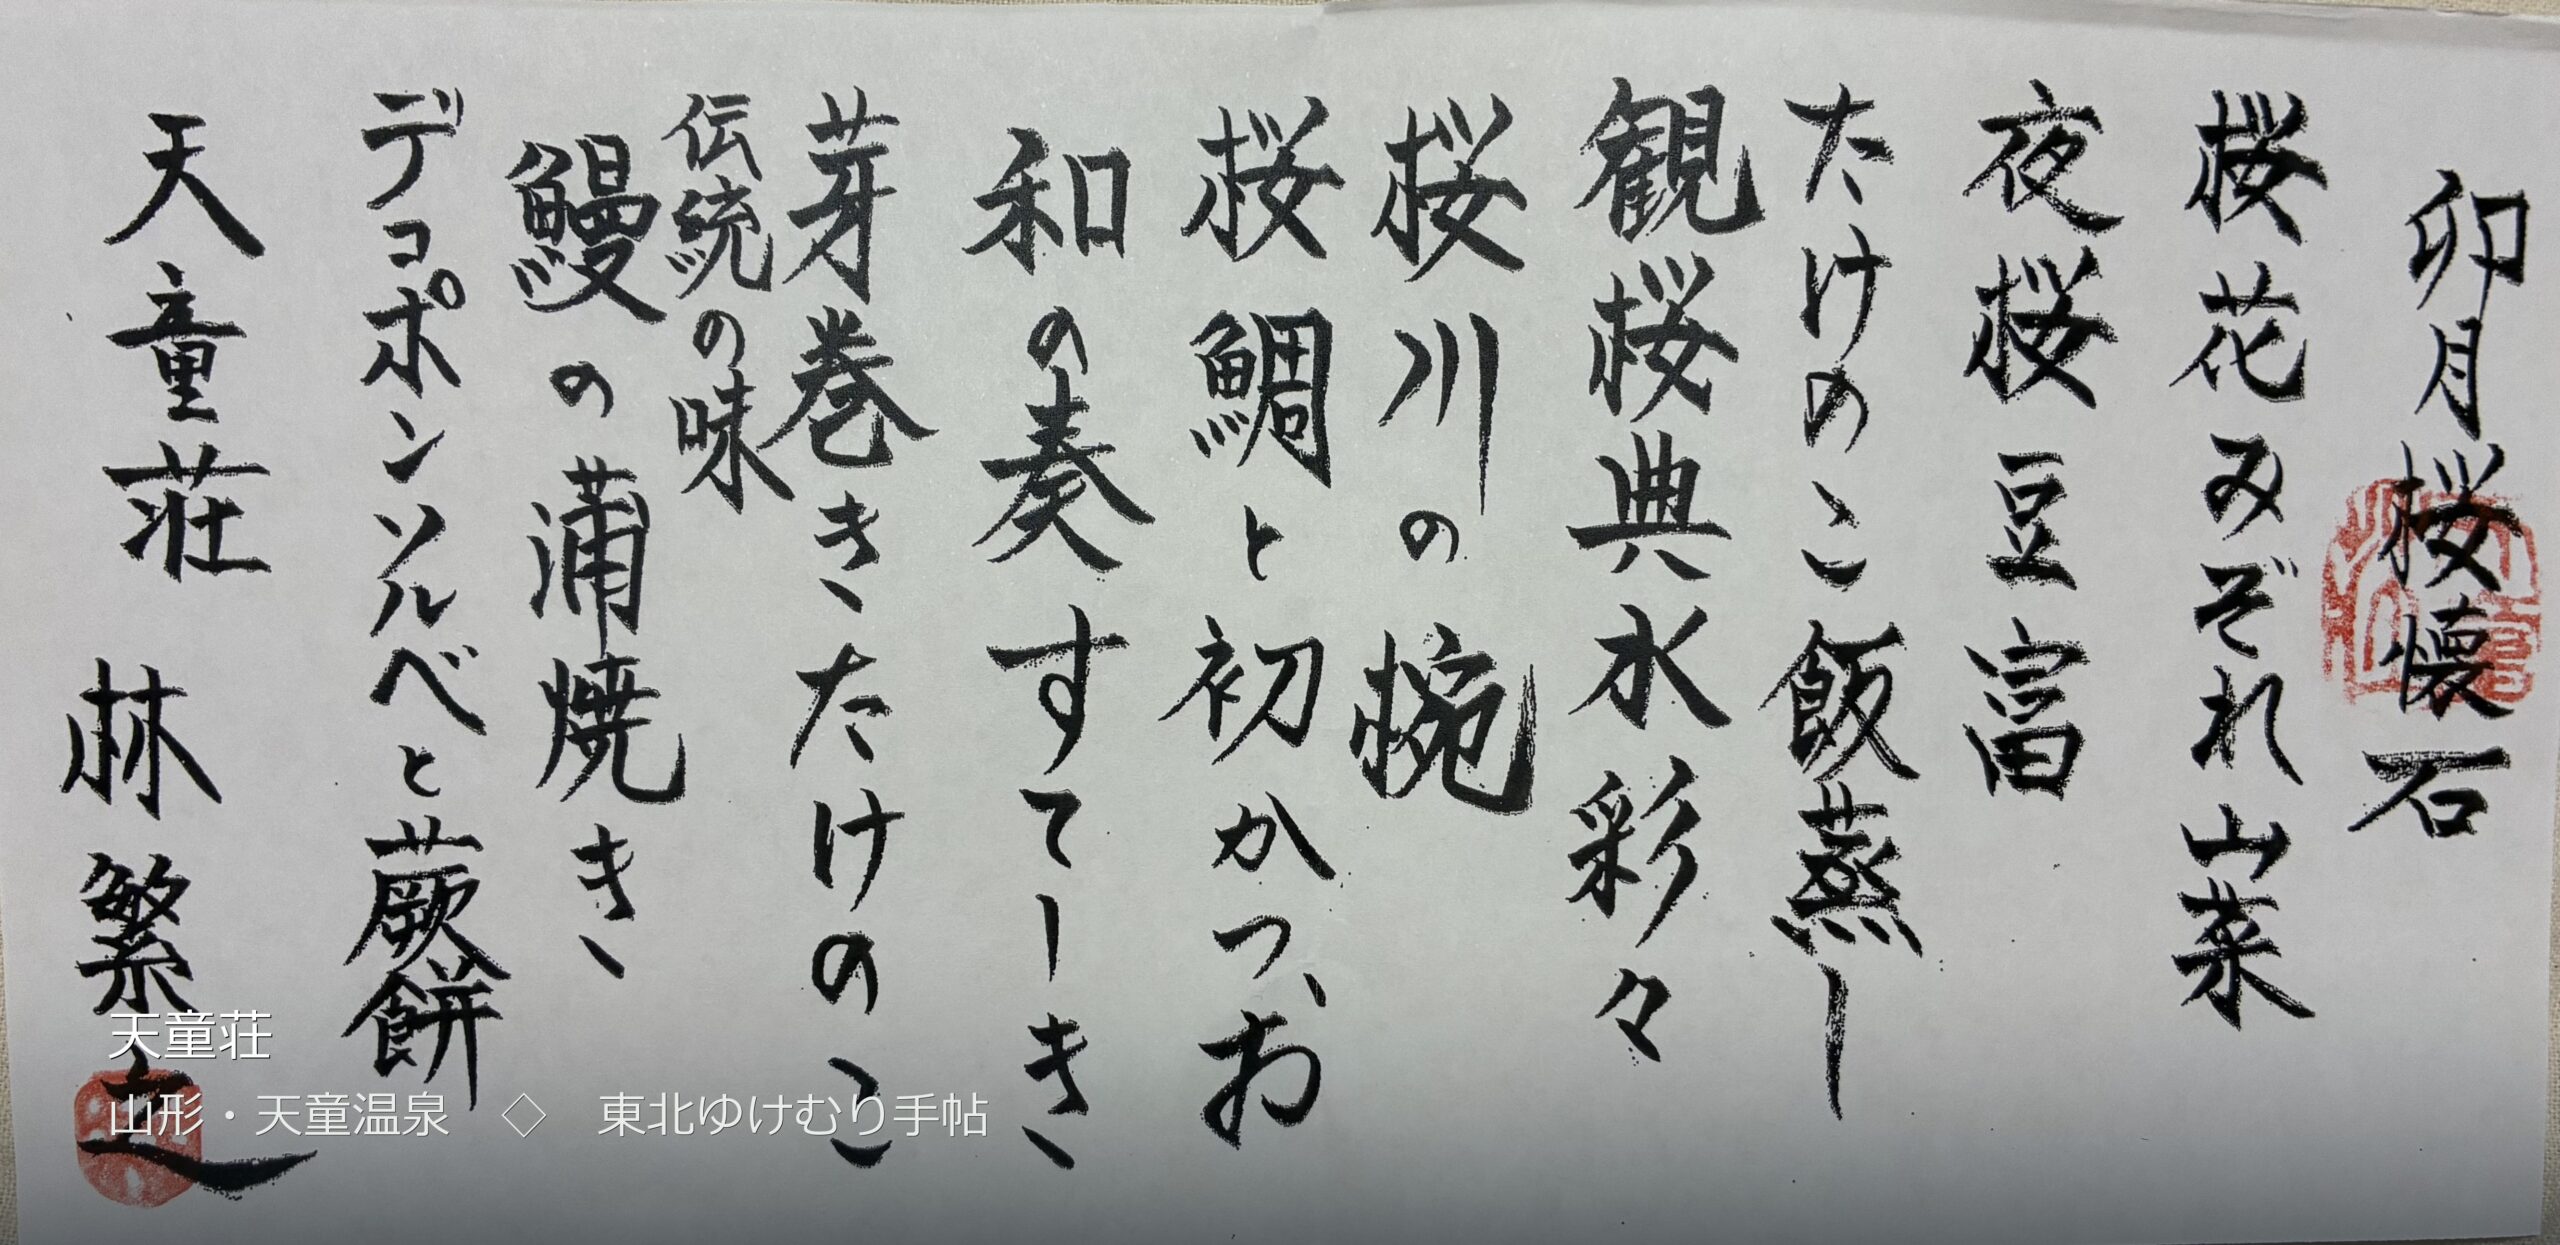 卯月桜懐石
桜花みぞれ山菜
夜桜豆富
たけのこ飯蒸し
観桜典水彩々
桜川の椀
桜鯛と初かつお
和の奏すてーき
芽巻きたけのこ
伝統の味
鰻の蒲焼き
デコポンソルベと蕨餅
天童荘 林繁之
天童荘
山形・天童温泉 ◇ 東北ゆけむり手帖